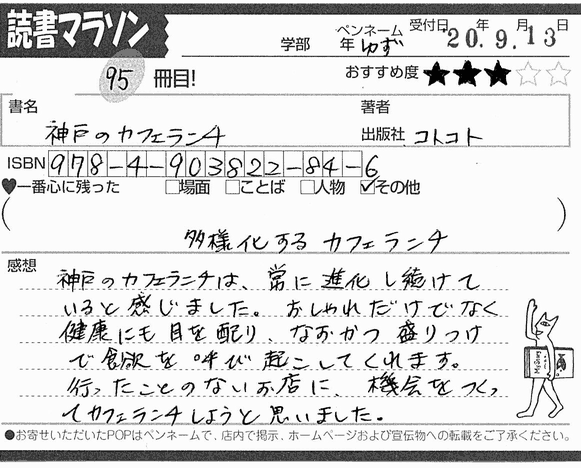 読書マラソン
学部 年 ペンネーム ゆず 受付日 '20年 9.月13日
95 冊目! おすすめ度 ★★★☆☆
書名 著者
神戸のカフェランチ 出版社 コトコト
ISBN 978-4-903822-84-6
♥一番心に残った □場面 □ことば □人物 ☑その他
( )
多様化するカフェランチ
感想
神戸のカフェランチは、常に進化し続けて
いると感じました。おしゃれだけでなく
健康にも目を配り、なおかつ盛りつけ
で食欲を呼び起こしてくれます。
行ったことのないお店に、機会をつくっ
てカフェランチしようと思いました。
●お寄せいただいたPOPはペンネームで、店内で掲示、ホームページおよび宣伝物への転載をご了承ください。